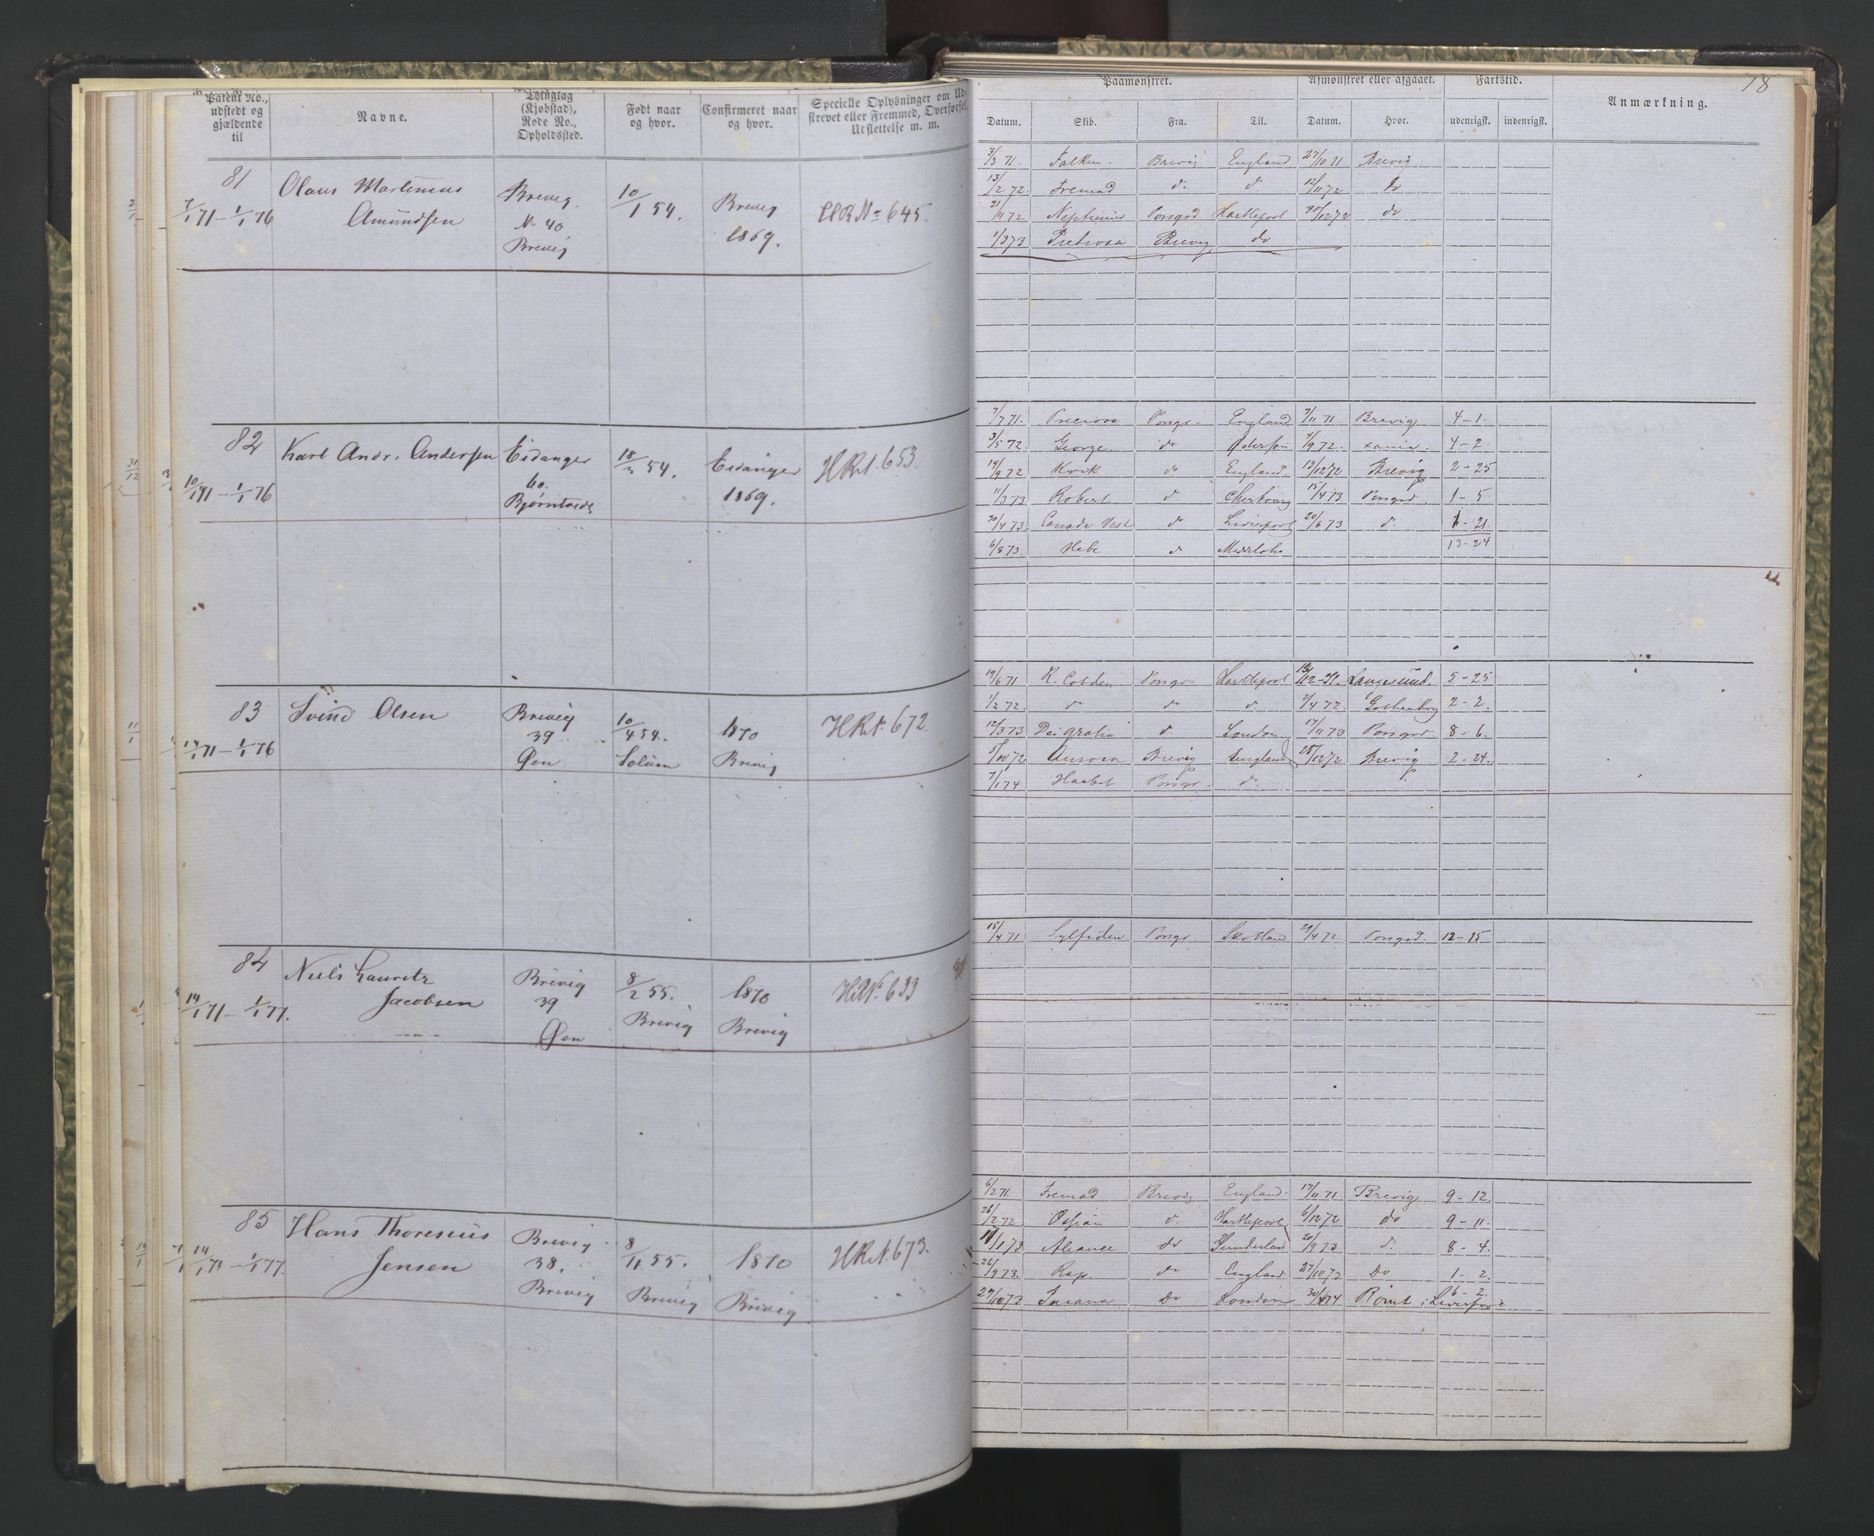 Patent No., udstedt og gjældende til
Navne.
(Kjøbstad), Rode No., Opholdssted.
Født naar og hvor.
Confirmeret naar og hvor.
Specielle Oplysninger om Udskrevet eller Fremmed, Overførsel, Udslettelse m. m.
81
7/1 71 – 1/1 76
Olaus Martinius
Amundsen
Brevig
N. 40
Brevig
10/1 54.
Brevig
1869.
HR No 645.
82
10/1 71 – 1/1 76
Karl Andr. Andersen
Eidanger
60.
18/3 54.
Eidanger
1869.
HR N. 653.
83
14/1 71 – 1/1 76
Svend Olsen
Brevig
39
Øen
10/4 54.
Solum
1870
Brevig
HR N. 672.
84
14/1 71 – 1/1 77.
Niels Lauritz
Jacobsen
Brevig
39
Øen
8/2 55.
Brevig
1870
Brevig
85
14/1 71 – 1/1 77.
Hans Thoresius
Jensen
Brevig
38.
Brevig
8/11 55.
Brevig
1870
Brevig
HR N. 673.
78
Paamønstret.
Afmønstret eller afgaaet.
Fartstid.
Anmærkning.
Datum. Skib. Fra. Til. Datum. Hvor. udenrigsk. indenrigsk.
7/3 71. Falken. Brevig England 27/10 71 Brevig
13/2 72. Fremad do do 12/11 72 do
21/11 72 Neptunus Porsgrd Hartlepool 30/12 72 do
1/3 73 Brevig do
7/7 71. Preciosa Porsgr. England 7/11 71 Brevig 4–1.
3/5 72. George do 7/9 72. 4–2.
19/9 72 do England 13/12 72 Brevig 2–25
11/3 73 Robert do Cherbourg 15/4 73 Porsgrd. 1–5.
30/4 73 Canada Vest do Liverpool 20/6 73 do 1–21
13–24
6/8 73. Hebe do
19/6 71 R. Cobden Porsgr Hartlepool 12–71. Langesund. 5–25
1/2 72. do do do 3/4 72. Gothenborg 2–2.
12/3 73 Dei gratia do London 17/11 73 Porsgrd 8–6.
5/10 72 Aurora Brevig England 28/12 72 Brevig 2–24.
7/1 74 Haabet Porsgr. do
15/4 71 Sylfiden Porsgr Skotland 29/4 72 Porsgrd. 12–15
6/2 71 Fremad Brevig England 17/11 71 Brevig 9–12
26/2 72 Ossian do Hartlepool 6/12 72 do 9–11.
Aliance do Sunderland 20/9 73 do 8–4.
26/9 73. Rap. do England 27/10 73 Do 1–2.
29/10 73 Do London Rømt i Liverpool 6–2.